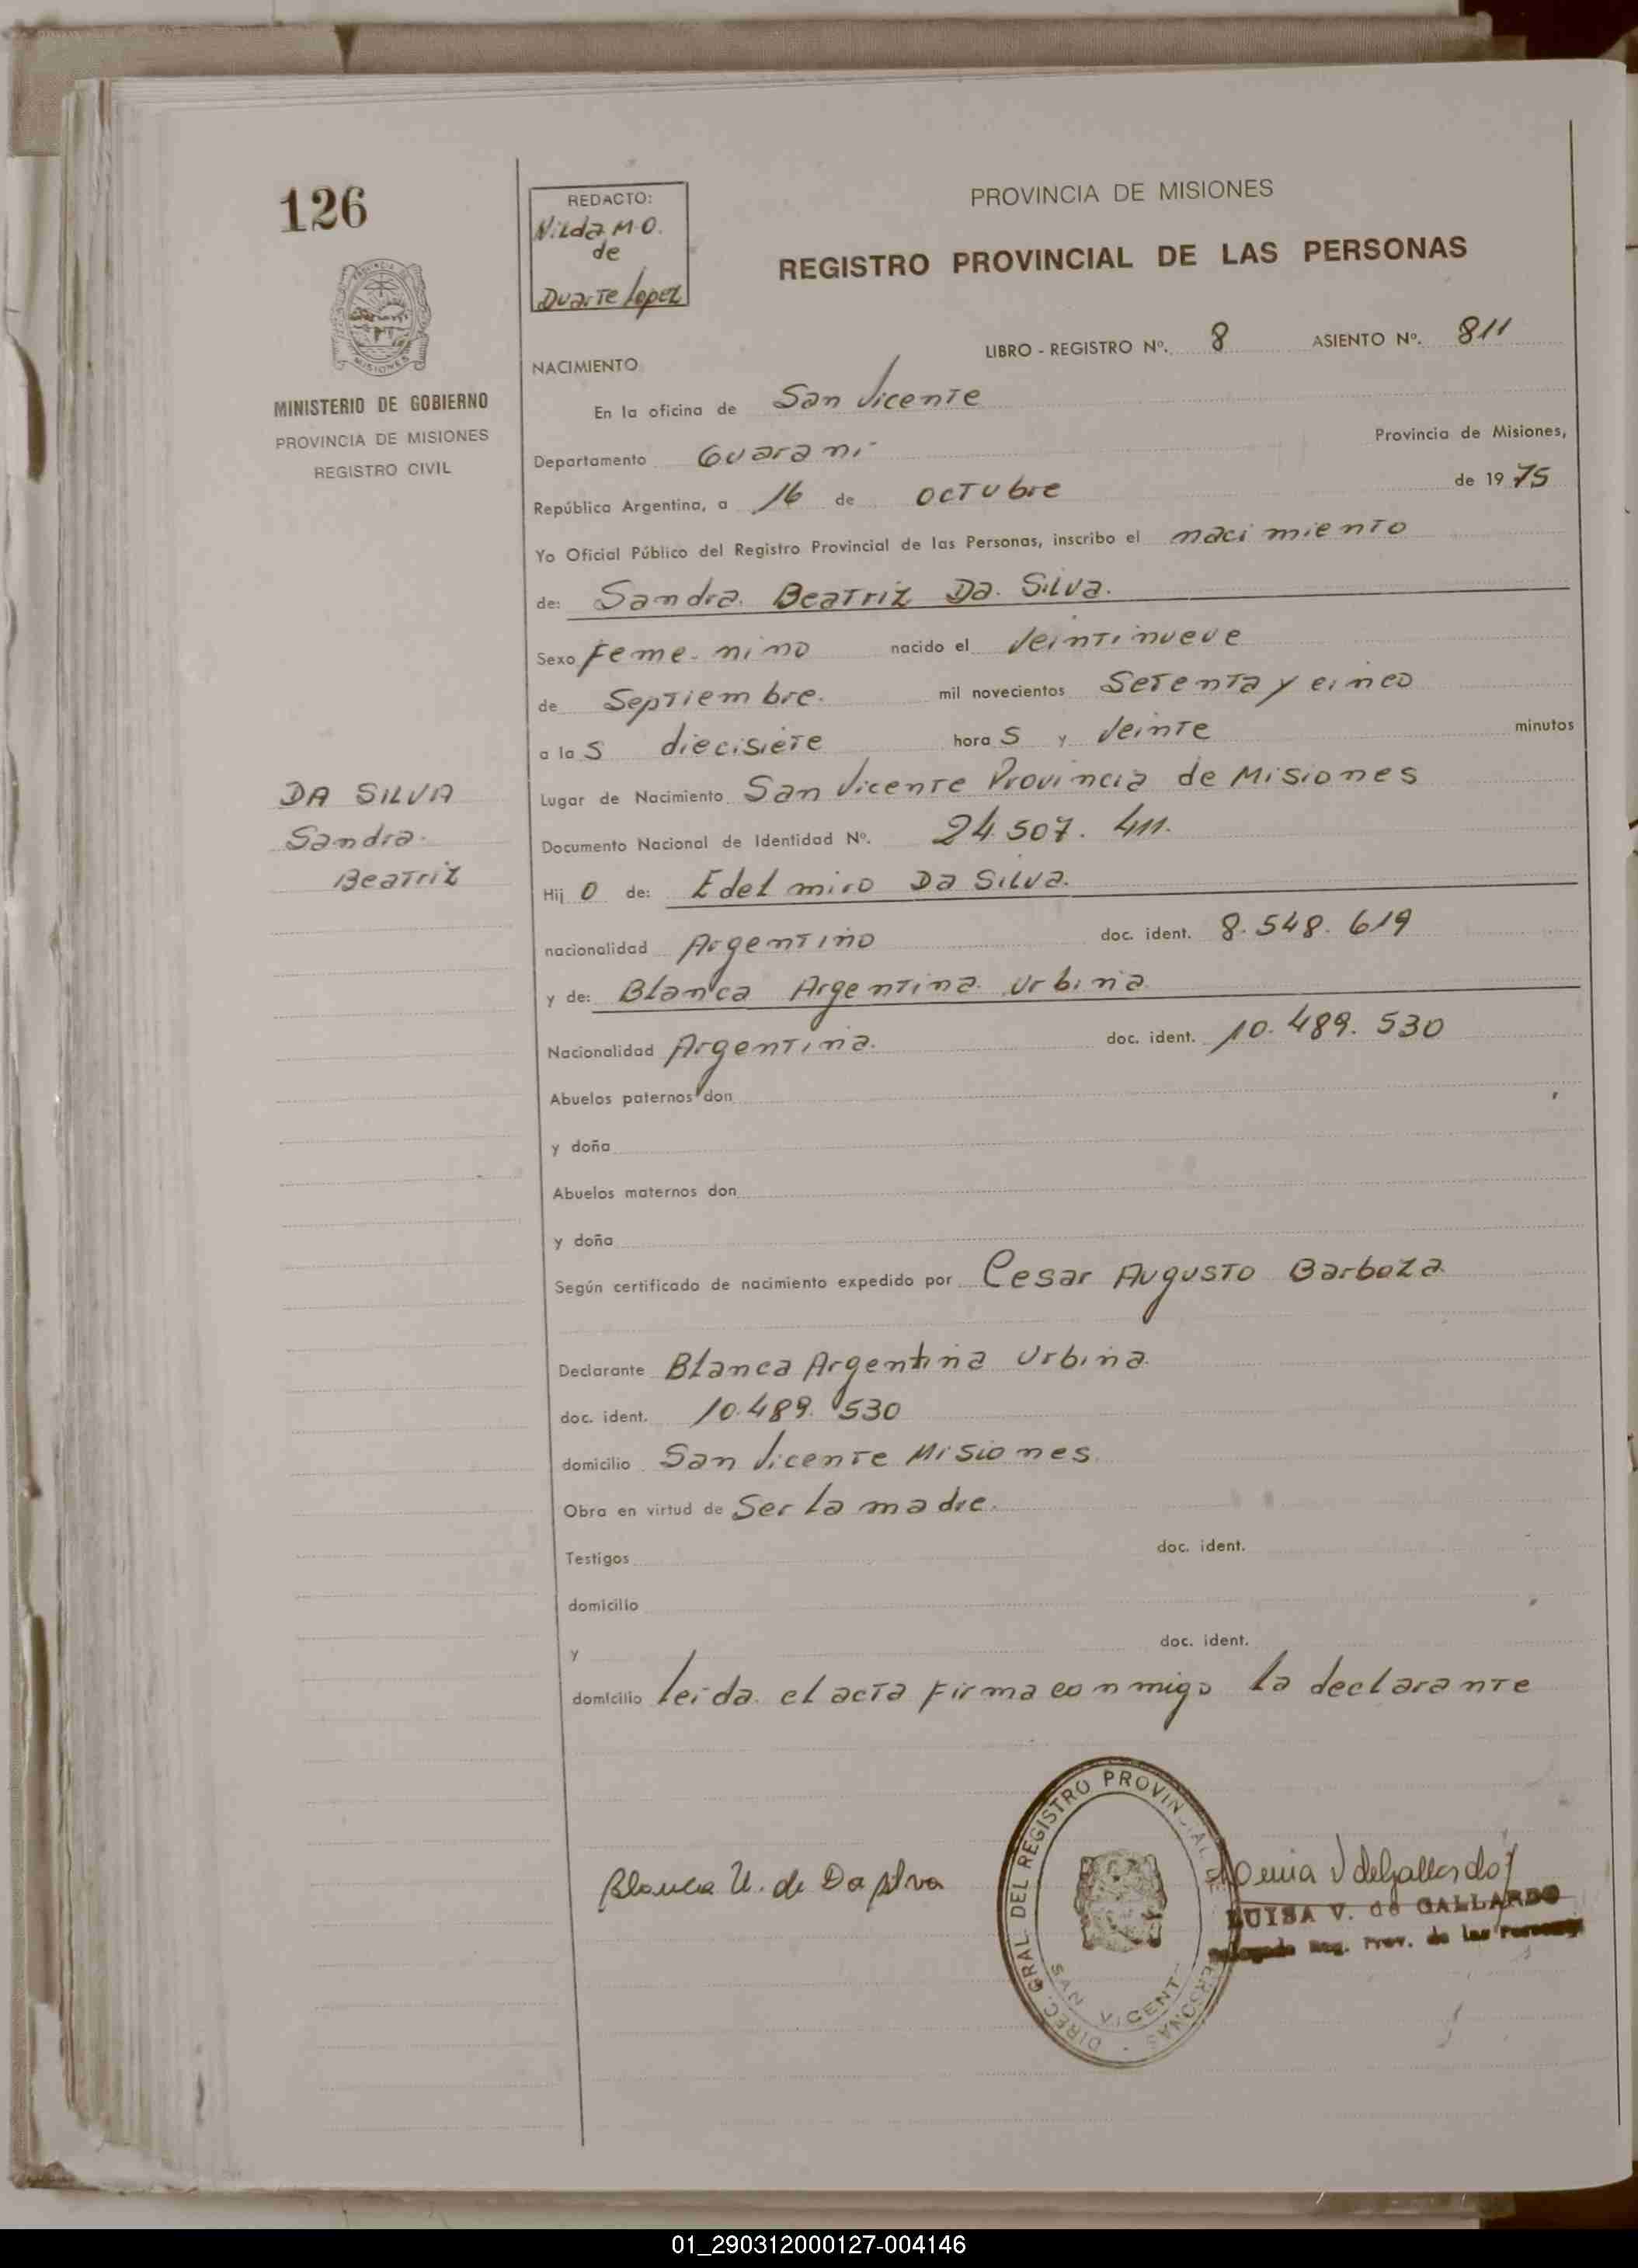 126
REDACTO:
Nilda M.O.
de
Duarte Lopez
PROVINCIA DE MISIONES
REGISTRO PROVINCIAL DE LAS PERSONAS
PROVINCIA DE
MISIONES
MINISTERIO DE GOBIERNO
PROVINCIA DE MISIONES
REGISTRO CIVIL
LIBRO - REGISTRO Nº. 8 ASIENTO Nº. 811
NACIMIENTO
En la oficina de San Vicente
Departamento Guarani Provincia de Misiones,
República Argentina, a 16 de octubre de 1975
Yo Oficial Público del Registro Provincial de las Personas, inscribo el nacimiento
de: Sandra. Beatriz Da. Silva.
Sexo Feme-nino nacido el Veintinueve
de Septiembre. mil novecientos Setenta y cinco
a las diecisiete horas y Veinte minutos
DA SILVA
Sandra.
Beatriz
Lugar de Nacimiento San Vicente Provincia de Misiones
Documento Nacional de Identidad Nº. 24.507.411.
Hijo de: Edelmiro Da Silva.
nacionalidad Argentino doc. ident. 8.548.619
y de: Blanca Argentina Urbina
Nacionalidad Argentina. doc. ident. 10.489.530
Abuelos paternos don
y doña
Abuelos maternos don
y doña
Según certificado de nacimiento expedido por Cesar Augusto Barboza
Declarante Blanca Argentina Urbina
doc. ident. 10.489.530
domicilio San Vicente Misiones.
Obra en virtud de Ser la madre.
Testigos doc. ident.
domicilio
y doc. ident.
domicilio leida el acta firma conmigo la declarante
Blanca U. de Da Silva
DIREC. GRAL. DEL REGISTRO PROVINCIAL DE PERSONAS
SAN VICENT
V de Gallardo
LUISA V. de GALLARDO
Delegada Reg. Prov. de las Personas
01_290312000127-004146